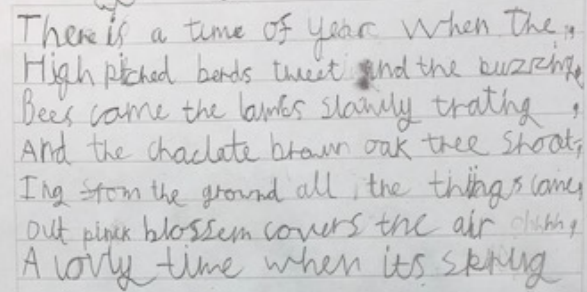 There is a time of year when the,
High piched berds tweet and the buzzing
Bees come the lambs slowly trating,
And the chaclate brown oak tree shoot,
Ing from the ground all the things come,
out pinck blossem covers the air
A lovly time when its spring